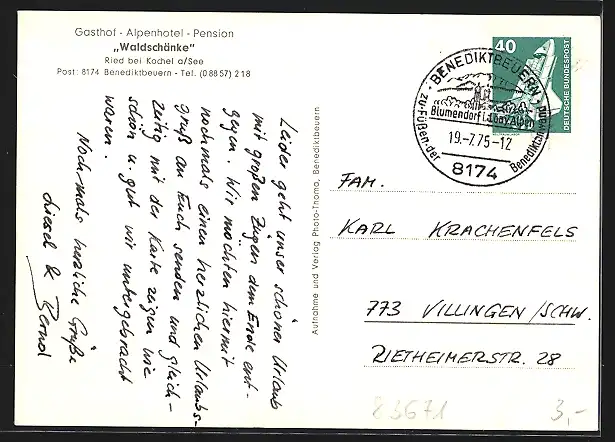 Gasthof - Alpenhotel - Pension
„Waldschänke"
Ried bei Kochel a/See
Post: 8174 Benediktbeuern - Tel. (0 88 57) 2 18
Leider geht unser schöner Urlaub
mit großen Zügen dem Ende ent-
gegen. Wir möchten hiermit
nochmals einen herzlichen Urlaubs-
gruß an Euch senden und gleich-
zeitig mit der Karte zeigen wie
schön u. gut wir untergebracht
waren.
Nochmals herzliche Grüße
Liesel & Bernd
Aufnahme und Verlag Photo-Thoma, Benediktbeuern
BENEDIKTBEUERN
Blumendorf i. oby. Alpen
19.-7.75-12
zu Füßen der Benediktenwand
8174
40
DEUTSCHE BUNDESPOST
FAM.
KARL KRACHENFELS
773 VILLINGEN/SCHW.
RIETHEIMERSTR. 28
23671
3,-